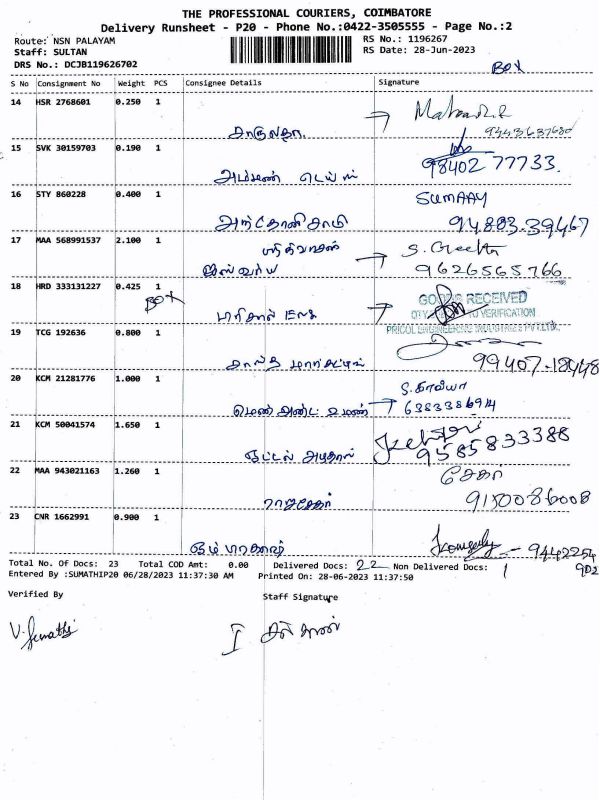 THE PROFESSIONAL COURIERS, COIMBATORE
Delivery Runsheet - P20 - Phone No.:0422-3505555 - Page No.:2
Route: NSN PALAYAM RS No.: 1196267
Staff: SULTAN RS Date: 28-Jun-2023
DRS No.: DCJB119626702
BOX
S No Consignment No Weight PCS Consignee Details Signature
14 HSR 2768601 0.250 1
15 SVK 30159703 0.190 1
98402 77733.
16 STY 860228 0.400 1 SUMAAY
அந்தோனிசாமி 94883-39467
17 MAA 568991537 2.100 1 S. Geetha
ஐஸ்வர்யா 9626565766
18 HRD 333131227 0.425 1
BOX
GOODS RECEIVED
VERIFICATION
PRICOL ENGINEERING INDUSTRIES PVT LTD.
19 TCG 192636 0.800 1
99407-18948
20 KCM 21281776 1.000 1 S. காவியா
மென் அண்ட் உமன் 6383386914
21 KCM 50041574 1.650 1
9585833388
22 MAA 943021163 1.260 1 சேகர்
ராஜசேகர் 9150086008
23 CNR 1662991 0.900 1
ஓம் பிரகாஷ் 9442254
902
Total No. Of Docs: 23 Total COD Amt: 0.00 Delivered Docs: 22 Non Delivered Docs: 1
Entered By :SUMATHIP20 06/28/2023 11:37:30 AM Printed On: 28-06-2023 11:37:50
Verified By Staff Signature
V. Sumathi